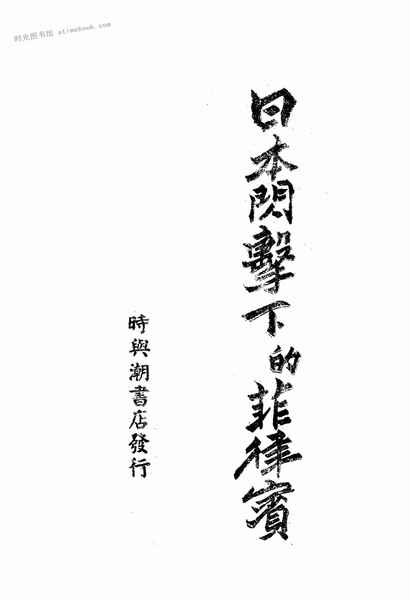 时光图书馆 atimebook.com
日本閃擊下的菲律賓
時與潮書店發行